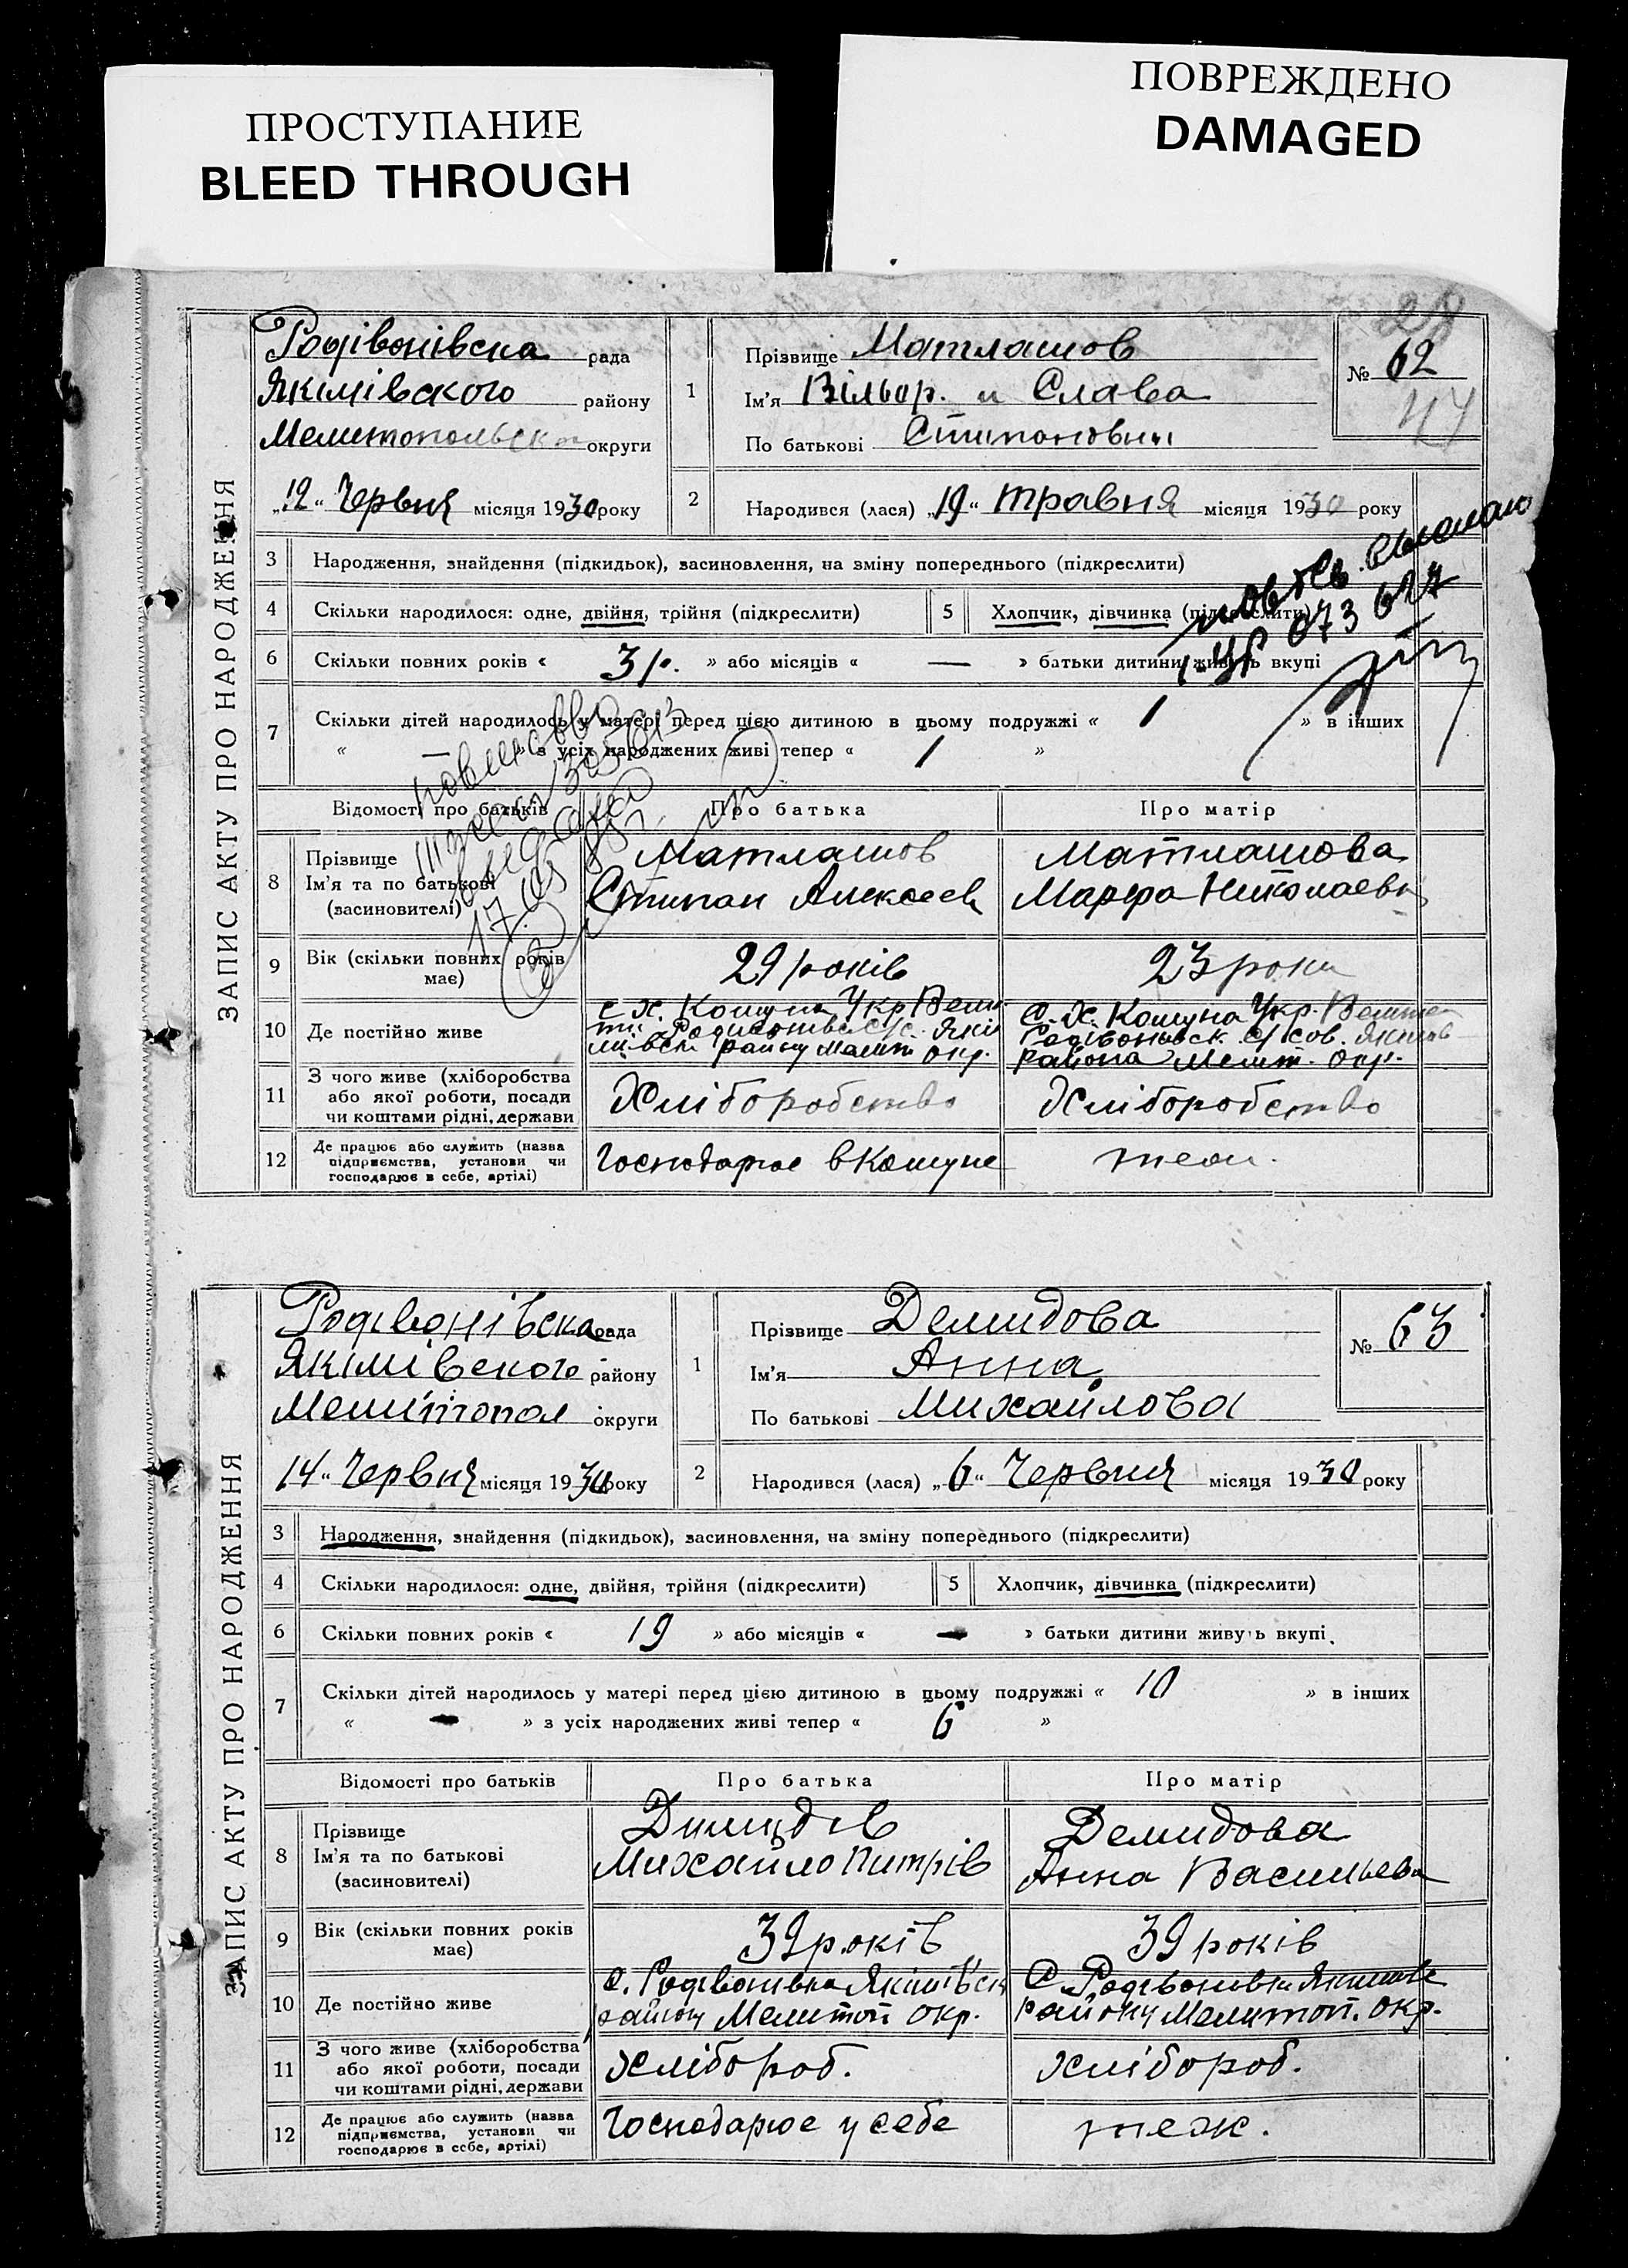 ПРОСТУПАНИЕ
BLEED THROUGH
ПОВРЕЖДЕНО
DAMAGED
28
ЗАПИС АКТУ ПРО НАРОДЖЕННЯ
Родівонівска рада
Якімівского району
Мелитопольск округи
„12“ Червня місяця 1930 року
1 Прізвище Матлашов
Ім'я Вільор. и Слава
По батькові Стипанович
№ 62
47
2 Народився (лася) „19“ травня місяця 1930 року
3 Народження, знайдення (підкидьок), засиновлення, на зміну попереднього (підкреслити)
4 Скільки народилося: одне, двійня, трійня (підкреслити)
5 Хлопчик, дівчинка (підкреслити)
6 Скільки повних років « 3 р. » або місяців « — » батьки дитини живуть вкупі
7 Скільки дітей народилось у матері перед цією дитиною в цьому подружжі « 1 » в інших
« — » з усіх народжених живі тепер « 1 »
Відомості про батьків Про батька Про матір
8 Прізвище
Ім'я та по батькові
(засиновителі)
Матлашов
Стипан Алексеев
Матлашова
Марфа Николаевн
9 Вік (скільки повних років
має)
29 років
23 роки
10 Де постійно живе
с. х. Комуна Укр
район Мелит окр.
С. Х. Комуна Укр.
района Мелит. окр.
11 З чого живе (хліборобства
або якої роботи, посади
чи коштами рідні, держави
Хліборобство
Хліборобство
12 Де працює або служить (назва
підприємства, установи чи
господарює в себе, артілі)
Господарює в Комуне
теж.
ЗАПИС АКТУ ПРО НАРОДЖЕННЯ
Родівонівска рада
Якімівского району
Мелитопол округи
14 “ Червня місяця 1930 року
1 Прізвище Демидова
Ім'я Анна
По батькові Михайлова
№ 63
2 Народився (лася) „6“ Червня місяця 1930 року
3 Народження, знайдення (підкидьок), засиновлення, на зміну попереднього (підкреслити)
4 Скільки народилося: одне, двійня, трійня (підкреслити)
5 Хлопчик, дівчинка (підкреслити)
6 Скільки повних років « 19 » або місяців « — » батьки дитини живуть вкупі.
7 Скільки дітей народилось у матері перед цією дитиною в цьому подружжі « 10 » в інших
« — » з усіх народжених живі тепер « 6 »
Відомості про батьків Про батька Про матір
8 Прізвище
Ім'я та по батькові
(засиновителі)
Димидів
Михайло Питрів
Демидова
Анна Васильева
9 Вік (скільки повних років
має)
39 років
39 років
10 Де постійно живе
с. Родівонівка Якімівск
району Мелитоп окр.
С. Родівонівка Якимів
району Мелитоп. окр.
11 З чого живе (хліборобства
або якої роботи, посади
чи коштами рідні, держави
хлібороб.
хлібороб.
12 Де працює або служить (назва
підприємства, установи чи
господарює в себе, артілі)
Господарює у себе
теж.